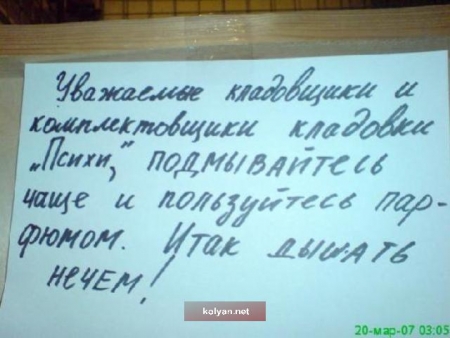 Уважаемые кладовщики и
комплектовщики кладовки
„Психи," ПОДМЫВАЙТЕСЬ
чаще и пользуйтесь пар-
фюмом. Итак дышать
нечем!
kolyan.net
20-мар-07 03:05